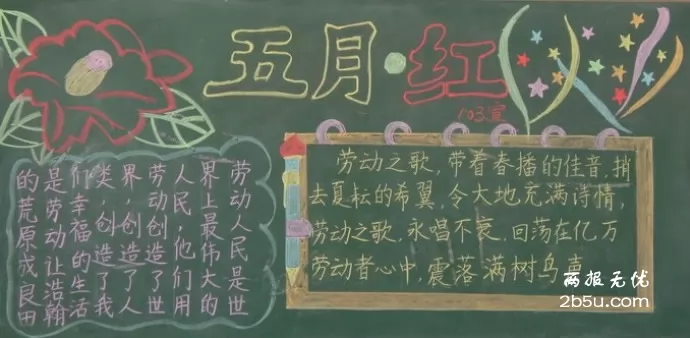 五月·红
103宣
劳动人民是世
界上最伟大的
人民,他们用
劳动创造了世
界,创造了人
类,创造了我
们幸福的生活
是劳动让浩瀚
的荒原成良田
劳动之歌,带着春播的佳音,捎
去夏耘的希翼,令大地充满诗情,
劳动之歌,永唱不衰,回荡在亿万
劳动者心中,震落满树鸟声
两报无忧
2b5u.com